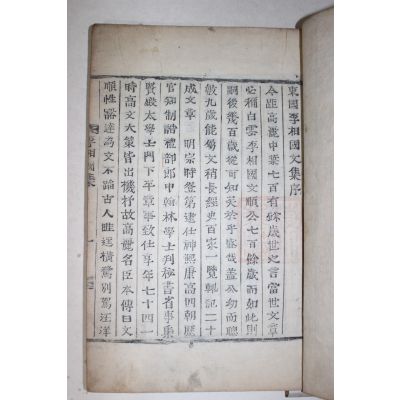 東國李相國文集序
今距高麗中葉七百有餘歲世之言當世文章
必稱白雲李相國文順公七百餘歲而如此則
嗣後幾百歲從可知矣於乎盛哉盖公幼而聰
敏九歲能屬文稍長經史百家一覽輒記二十
成文章 明宗時登第逮仕神熙康高四朝歷
官知制誥禮部郎中翰林學士判秘書省事集
賢殿太學士門下平章事致仕享年七十四一
時高文大策皆出機杼故高麗名臣本傳曰文
順性豁達為文不蹈古人畦逕橫騖別駕汪洋
李相國集
一